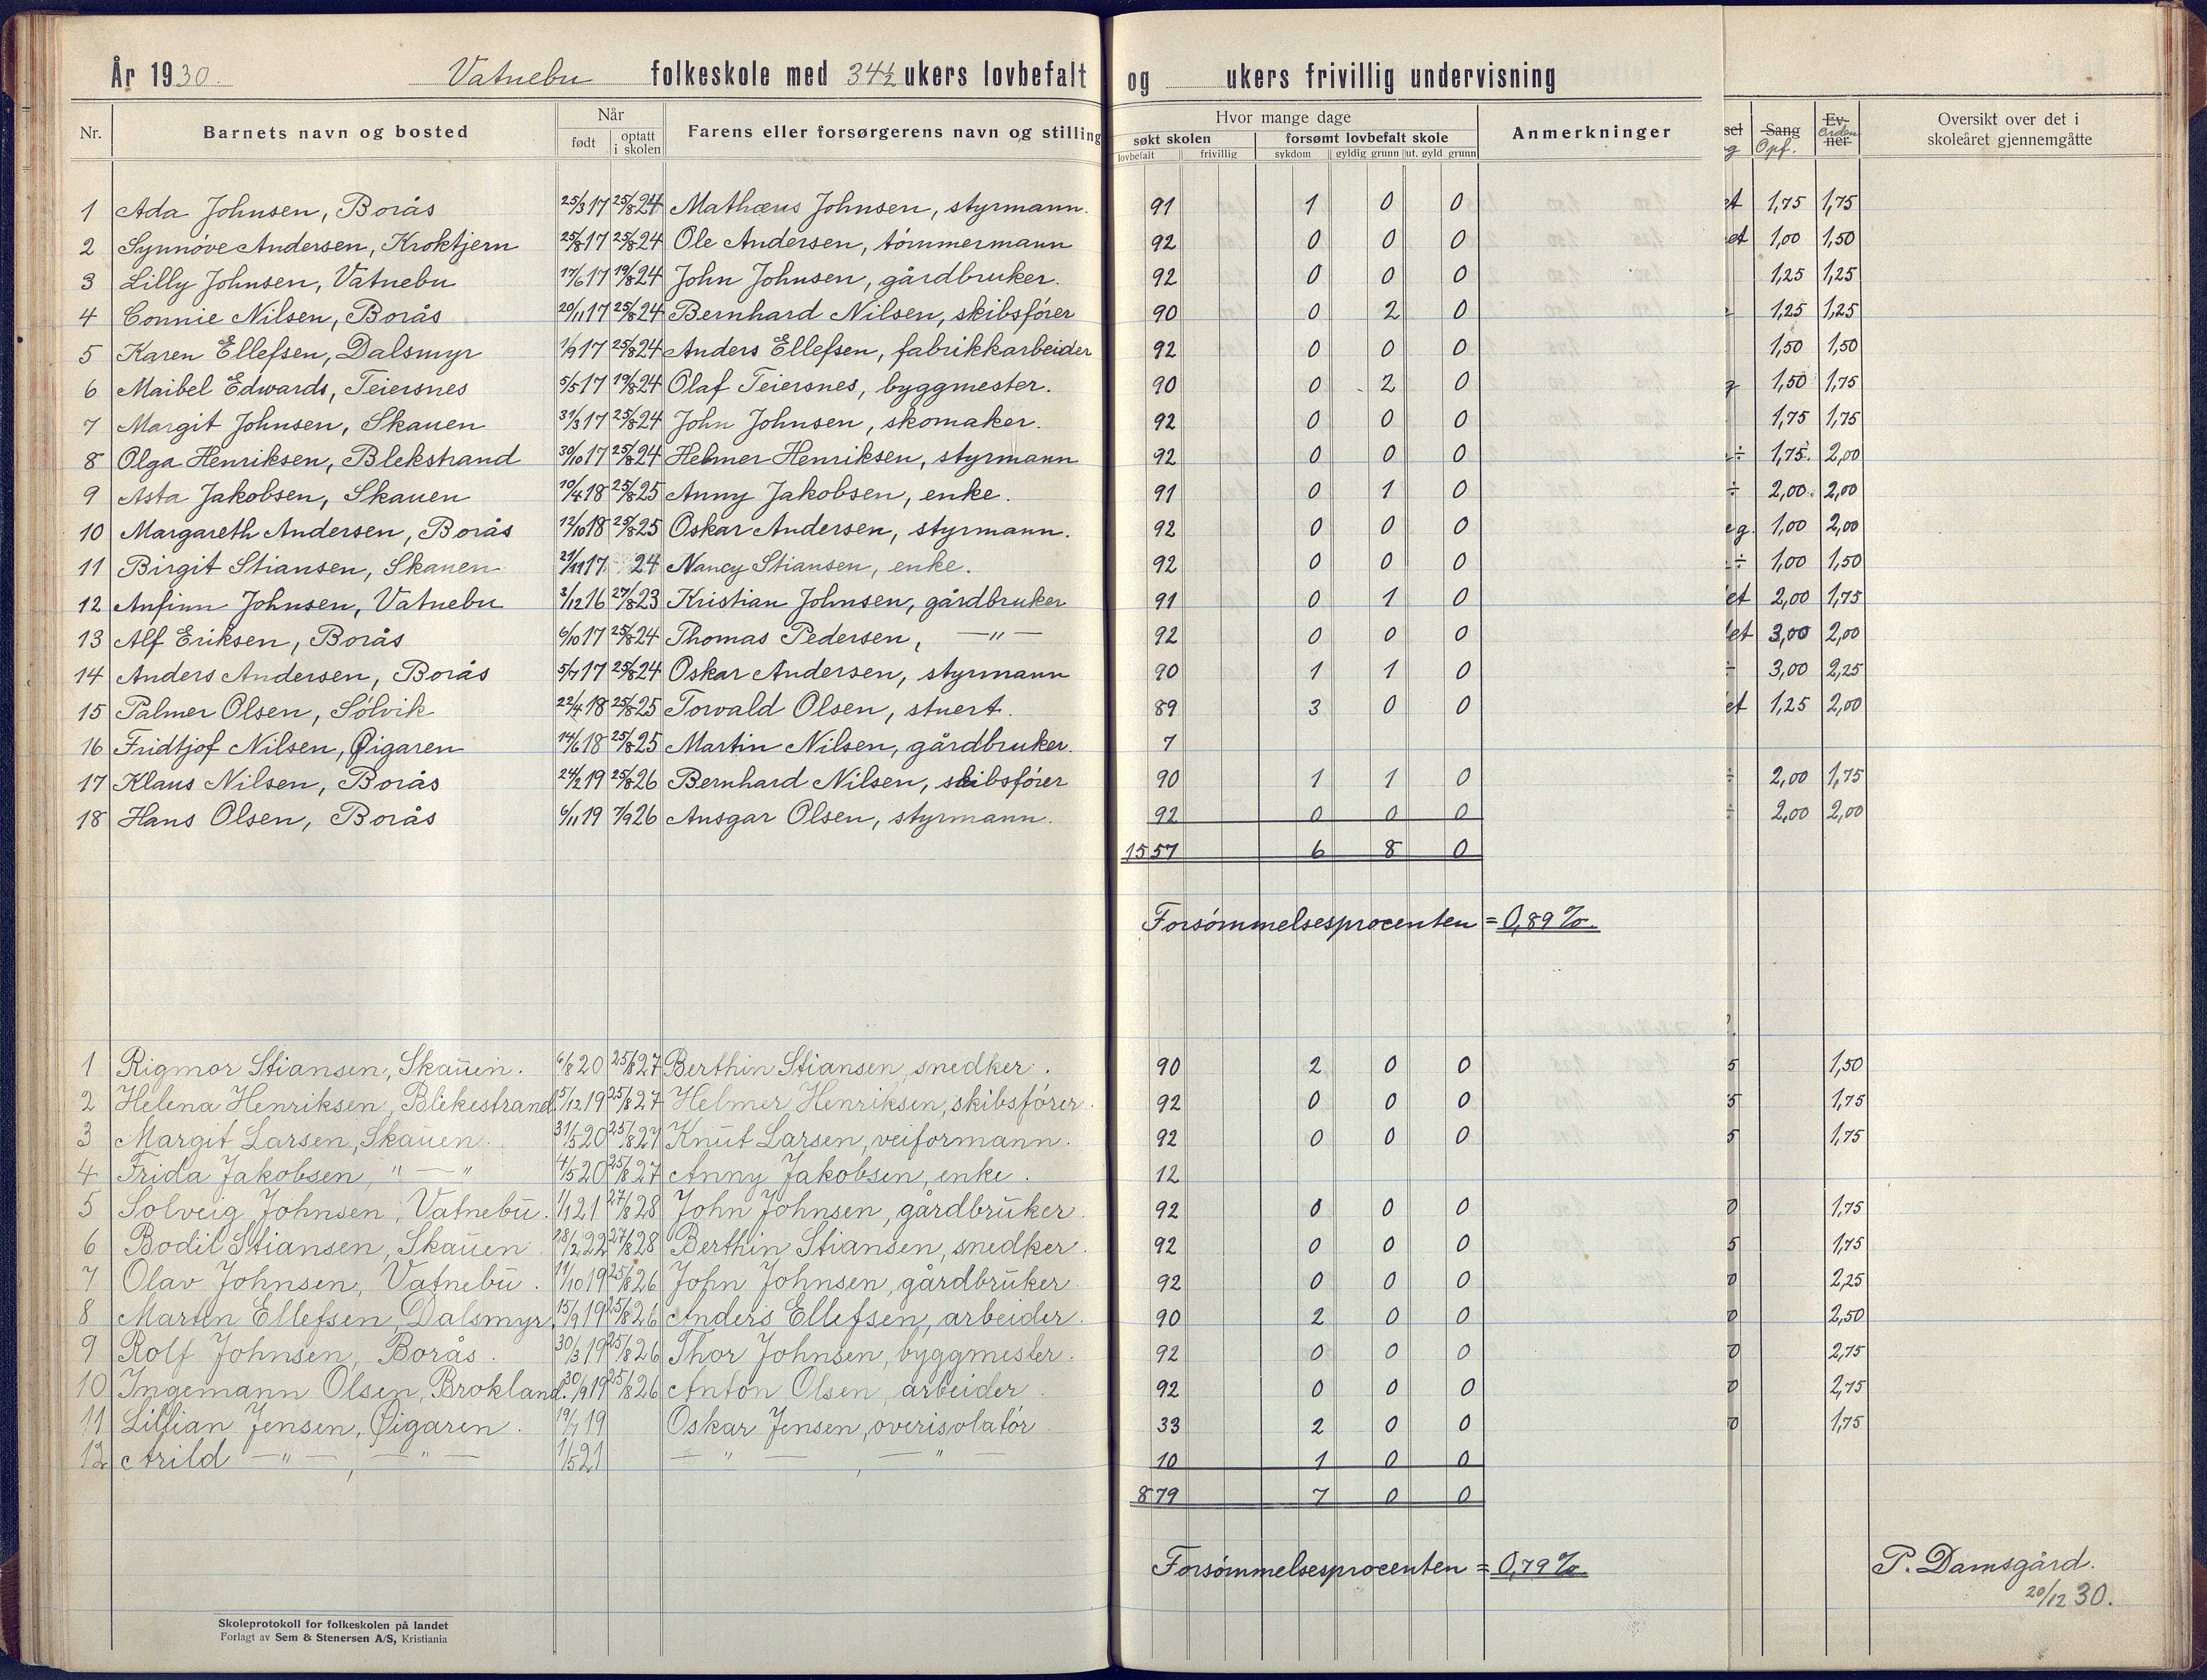 År 1930. Vatnebu folkeskole med 34½ ukers lovbefalt og ukers frivillig undervisning
Nr. Barnets navn og bosted Når Farens eller forsørgerens navn og stilling Hvor mange dage Anmerkninger Sang Ev- Oversikt over det i
født optatt i skolen søkt skolen forsømt lovbefalt skole Opf. Orden ner skoleåret gjennemgåtte
lovbefalt frivillig sykdom gyldig grunn ut. gyld grunn
1 Ada Johnsen, Borås 25/3 17 25/8 24 Mathæus Johnsen, styrmann. 91 1 0 0 et 1,75 1,75
2 Synnöve Andersen, Kroktjern 25/8 17 25/8 24 Ole Andersen, tömmermann 92 0 0 0 et 1,00 1,50
3 Lilly Johnsen, Vatnebu 17/6 17 19/8 24 John Johnsen, gårdbruker. 92 0 0 0 1,25 1,25
4 Connie Nilsen, Borås 20/11 17 25/8 24 Bernhard Nilsen, skibsförer 90 0 2 0 1,25 1,25
5 Karen Ellefsen, Dalsmyr 1/9 17 25/8 24 Anders Ellefsen, fabrikkarbeider 92 0 0 0 1,50 1,50
6 Maibel Edwards, Teiersnes 5/5 17 19/8 24 Olaf Teiersnes, byggmester. 90 0 2 0 g 1,50 1,75
7 Margit Johnsen, Skauen 31/3 17 25/8 24 John Johnsen, skomaker. 92 0 0 0 1,75 1,75
8 Olga Henriksen, Blekstrand 30/10 17 25/8 24 Helmer Henriksen, styrmann 92 0 0 0 ÷ 1,75. 2,00
9 Asta Jakobsen, Skauen 10/4 18 25/8 25 Anny Jakobsen, enke. 91 0 1 0 ÷ 2,00 2,00
10 Margareth Andersen, Borås 12/10 18 25/8 25 Oskar Andersen, styrmann. 92 0 0 0 eg. 1,00 2,00
11 Birgit Stiansen, Skauen 21/11 17 24 Nancy Stiansen, enke. 92 0 0 0 ÷ 1,00 1,50
12 Anfinn Johnsen, Vatnebu 3/12 16 27/8 23 Kristian Johnsen, gårdbruker 91 0 1 0 et 2,00 1,75
13 Alf Eriksen, Borås 6/10 17 25/8 24 Thomas Pedersen, —"— 92 0 0 0 et 3,00 2,00
14 Anders Andersen, Borås 5/7 17 25/8 24 Oskar Andersen, styrmann 90 1 1 0 ÷ 3,00 2,25
15 Palmer Olsen, Sölvik 22/4 18 25/8 25 Torvald Olsen, stuert. 89 3 0 0 et 1,25 2,00
16 Fridtjof Nilsen, Øigaren 14/6 18 25/8 25 Martin Nilsen, gårdbruker. 7
17 Klaus Nilsen, Borås 24/2 19 25/8 26 Bernhard Nilsen, skibsförer 90 1 1 0 ÷ 2,00 1,75
18 Hans Olsen, Borås 6/11 19 7/9 26 Ansgar Olsen, styrmann. 92 0 0 0 ÷ 2,00 2,00
1557 6 8 0
Forsömmelsesprocenten = 0,89 %.
1 Rigmor Stiansen, Skauen. 6/8 20 25/8 27 Berthin Stiansen, snedker. 90 2 0 0 5 1,50
2 Helena Henriksen, Blekestrand. 5/12 19 25/8 27 Helmer Henriksen, skibsförer. 92 0 0 0 5 1,75
3 Margit Larsen, Skauen. 31/5 20 25/8 27 Knut Larsen, veiformann. 92 0 0 0 5 1,75
4 Frida Jakobsen, "—" 4/5 20 25/8 27 Anny Jakobsen, enke. 12
5 Solveig Johnsen, Vatnebu. 1/1 21 27/8 28 John Johnsen, gårdbruker. 92 0 0 0 0 1,75
6 Bodil Stiansen, Skauen. 18/2 22 27/8 28 Berthin Stiansen, snedker. 92 0 0 0 5 1,75
7. Olav Johnsen, Vatnebu. 11/10 19 25/8 26 John Johnsen, gårdbruker. 92 0 0 0 0 2,25
8 Martin Ellefsen, Dalsmyr. 15/9 19 25/8 26 Anders Ellefsen, arbeider. 90 2 0 0 0 2,50
9 Rolf Johnsen, Borås. 30/3 19 25/8 26 Thor Johnsen, byggmester. 92 0 0 0 0 2,75
10 Ingemann Olsen, Brokland. 30/9 19 25/8 26 Anton Olsen, arbeider. 92 0 0 0 0 2,75
11 Lillian Jensen, Øigaren. 19/7 19 Oskar Jensen, overisolatör. 33 2 0 0 0 1,75
12 Arild —"—, —"— 1/5 21 —"—, —"— 10 1 0 0
879 7 0 0
Forsömmelsesprocenten = 0,79 %.
P. Damsgård.
20/12 30.
Skoleprotokoll for folkeskolen på landet
Forlagt av Sem & Stenersen A/S, Kristiania